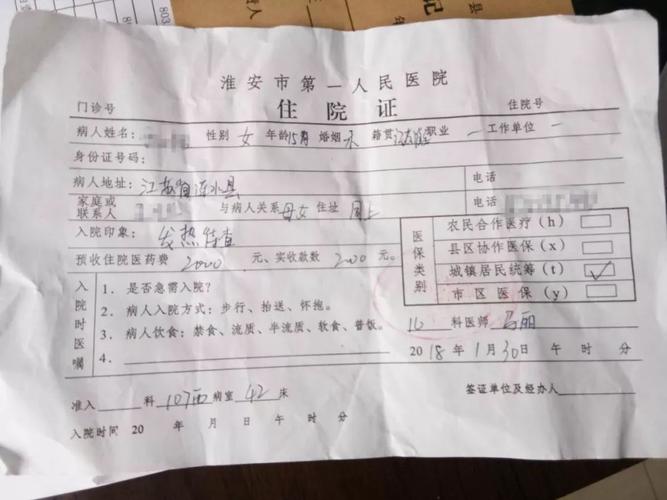 淮安市第一人民医院
门诊号 住院证 住院号
病人姓名: 性别 女 年龄 15月 婚姻 未 籍贯 江苏淮安 职业 一 工作单位 一
身份证号码:
病人地址: 江苏省涟水县 电话
家庭或联系人 与病人关系 母女 住址 同上 电话
入院印象: 发热待查
预收住院医药费 2000 元、实收款数 2000 元。
医保类别
农民合作医疗(h)
县区协作医保(x)
城镇居民统筹(t) ✓
市区医保(y)
入院时医嘱
1. 是否急需入院?
2. 病人入院方式:步行、抬送、怀抱。
3. 病人饮食:禁食、流质、半流质、软食、普饭。
4.
科医师 马丽
2018年1月30日 午 时 分
准入 科 107西 病室 42 床
签证单位及经办人:
入院时间 20 年 月 日 午 时 分
803